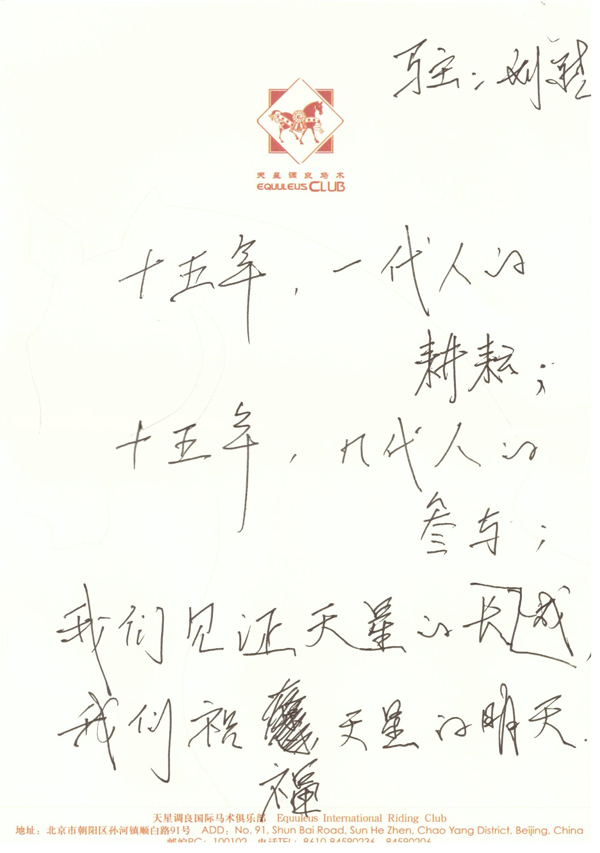 马主：刘
天星调良马术
EQUULEUS CLUB
十五年，一代人的
耕耘；
十五年，几代人的
参与；
我们见证天星的长成，
我们祝天星的明天.
福
天星调良国际马术俱乐部 Equuleus International Riding Club
地址：北京市朝阳区孙河镇顺白路91号 ADD：No. 91, Shun Bai Road, Sun He Zhen, Chao Yang District, Beijing, China
邮编PC：100102 电话TEL：8610-84590236 84590206